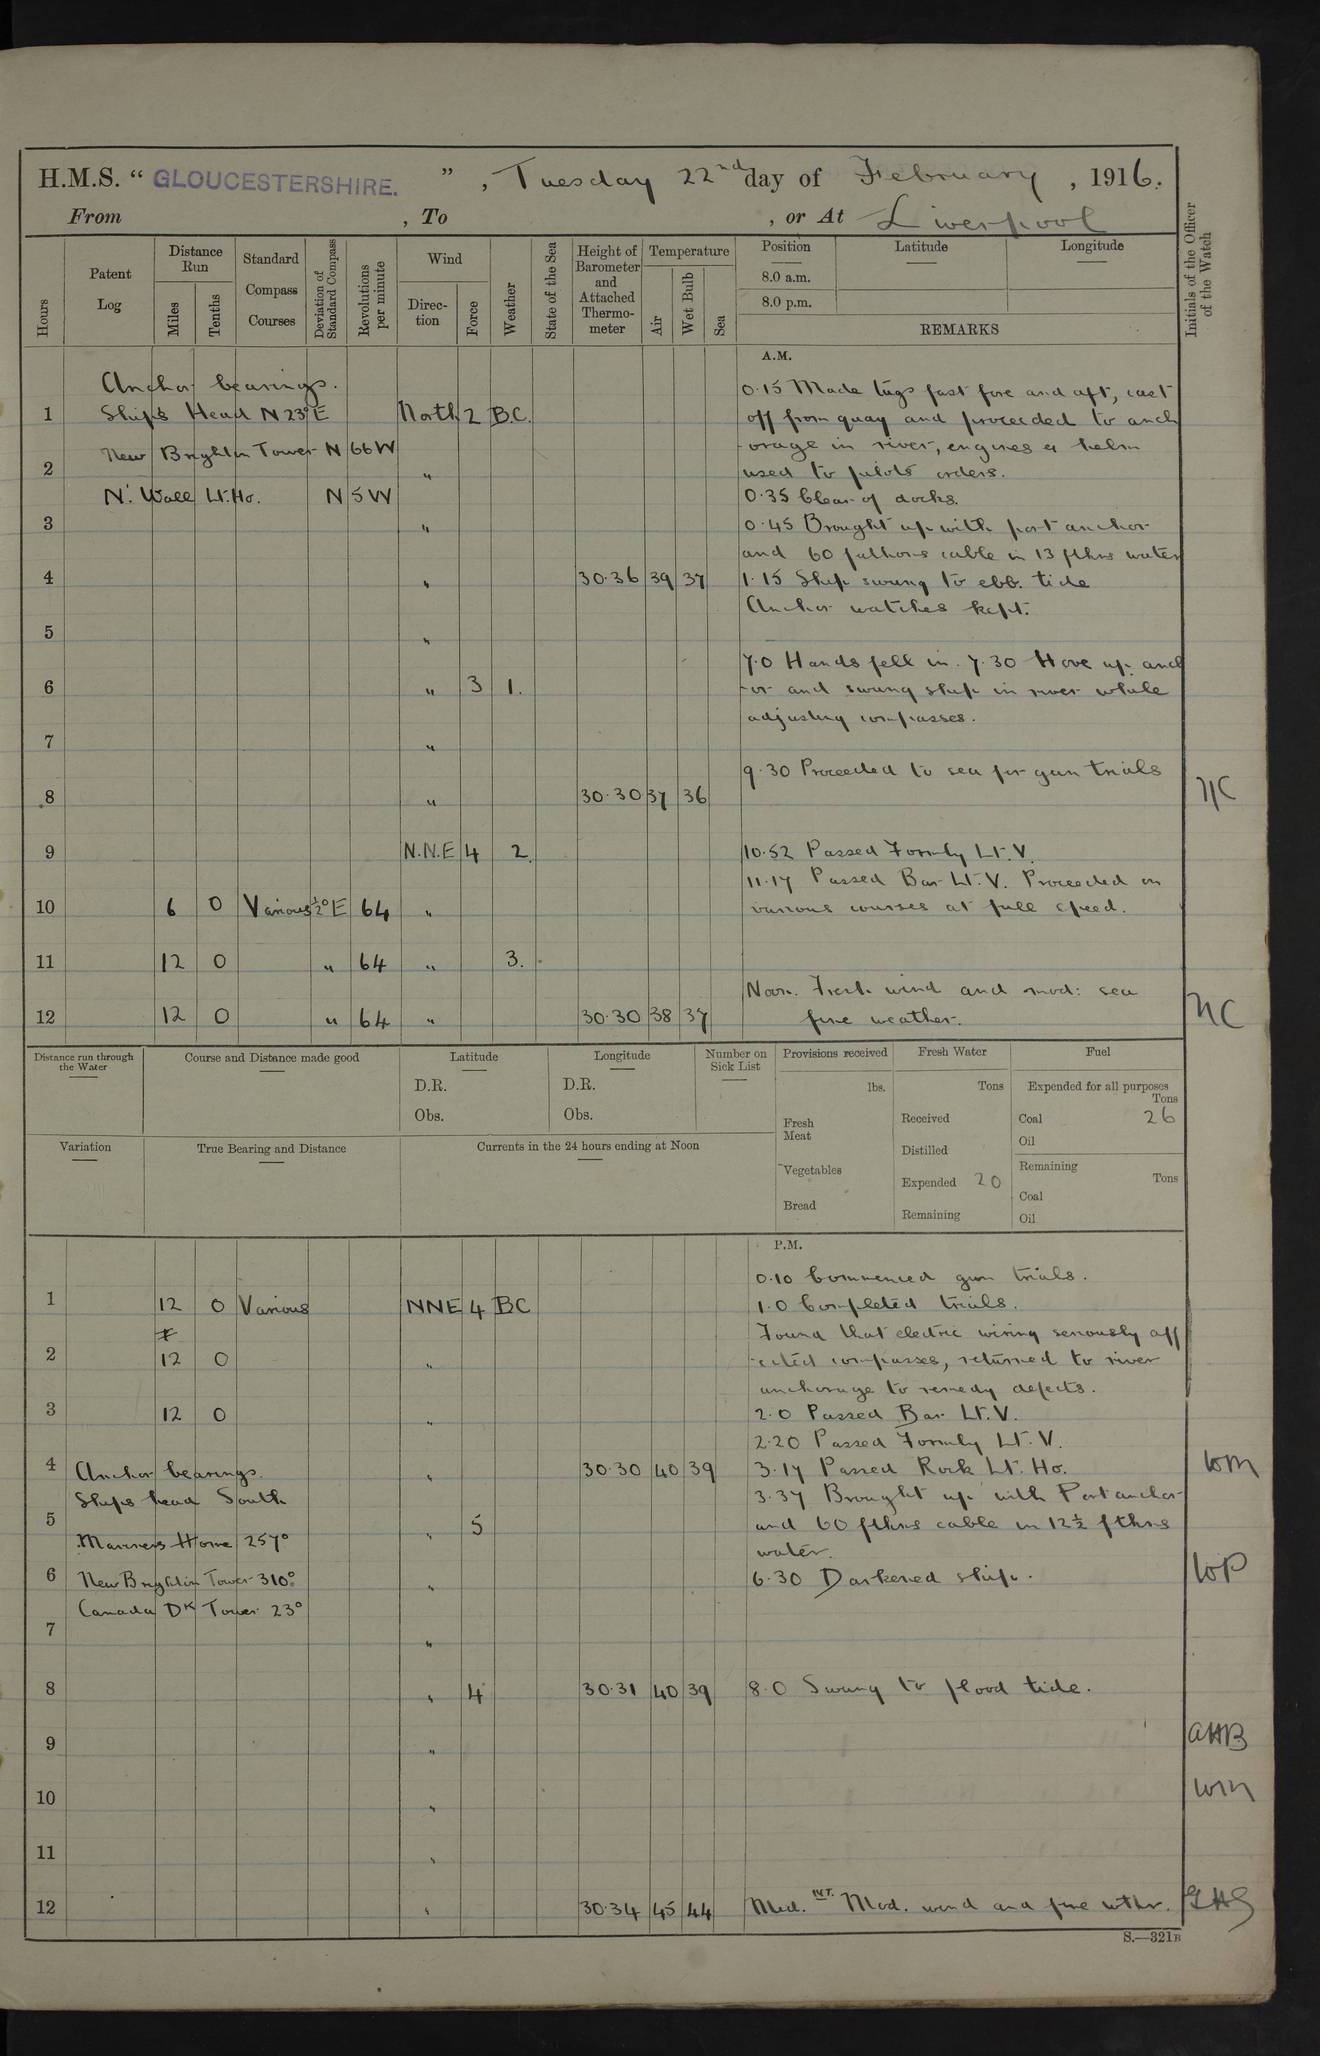 H.M.S. “ GLOUCESTERSHIRE. ” , Tuesday 22nd day of February , 1916.
From , To , or At Liverpool
Hours
Patent Log
Distance Run
Miles
Tenths
Standard Compass Courses
Deviation of Standard Compass
Revolutions per minute
Wind
Direc-tion
Force
Weather
State of the Sea
Height of Barometer and Attached Thermo-meter
Temperature
Air
Wet Bulb
Sea
Position
8.0 a.m.
8.0 p.m.
Latitude
Longitude
REMARKS
Initials of the Officer of the Watch
A.M.
Anchor bearings.
0.15 Made tugs fast fore and aft, cast
1 Ships Head N 23° E North 2 B.C. off from quay and proceeded to anch
New Brighton Tower N 66 W -orage in river, engines & helm
2 " used to pilots orders.
N. Wall Lt. Ho. N 5 W 0.35 Clear of docks.
3 " 0.45 Brought up with port anchor
and 60 fathoms cable in 13 fthms water
4 " 30.36 39 37 1.15 Ship swung to ebb. tide
Anchor watches kept.
5 "
7.0 Hands fell in. 7.30 Hove up anch
6 " 3 1. -or and swung ship in river while
adjusting compasses.
7 "
9.30 Proceeded to sea for gun trials
8 " 30.30 37 36 NC
9 N.N.E 4 2. 10.52 Passed Formby Lt. V.
11.17 Passed Bar Lt. V. Proceeded on
10 6 0 Various ½° E 64 " various courses at full speed.
11 12 0 " 64 " 3.
Noon. Fresh wind and mod: sea
12 12 0 " 64 " 30.30 38 37 fine weather. NC
Distance run through the Water
Course and Distance made good
Latitude
D.R.
Obs.
Longitude
D.R.
Obs.
Number on Sick List
Provisions received
lbs.
Fresh Meat
Vegetables
Bread
Fresh Water
Tons
Received
Distilled
Expended 20
Remaining
Fuel
Expended for all purposes
Tons
Coal 26
Oil
Remaining
Tons
Coal
Oil
Variation
True Bearing and Distance
Currents in the 24 hours ending at Noon
P.M.
0.10 Commenced gun trials.
1 12 0 Various NNE 4 BC 1.0 Completed trials.
Found that electric wiring seriously aff
2 12 0 " -ected compasses, returned to river
anchorage to remedy defects.
3 12 0 " 2.0 Passed Bar Lt. V.
2.20 Passed Formby Lt. V.
4 Anchor bearings. " 30.30 40 39 3.17 Passed Rock Lt. Ho. WM
Ships head South 3.37 Brought up with Port anchor
5 " 5 and 60 fthms cable in 12½ fthms
Mariners Home 257° water.
6 New Brighton Tower 310° " 6.30 Darkened ship. WP
Canada Dk Tower 23°
7 "
8 " 4 30.31 40 39 8.0 Swung to flood tide.
9 " AHB
10 " WM
11 "
12 " 30.34 45 44 Mid.NT. Mod. wind and fine wthr. GHS
S.—321B